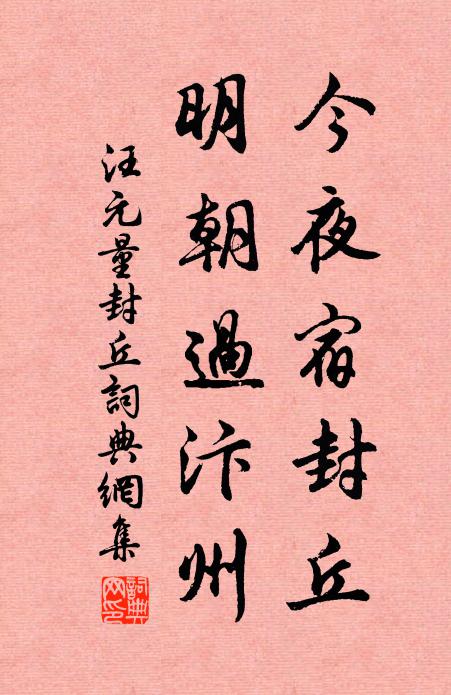 今夜宿封丘
明朝過汴州
汪元量封丘詞典網集
詞典網印